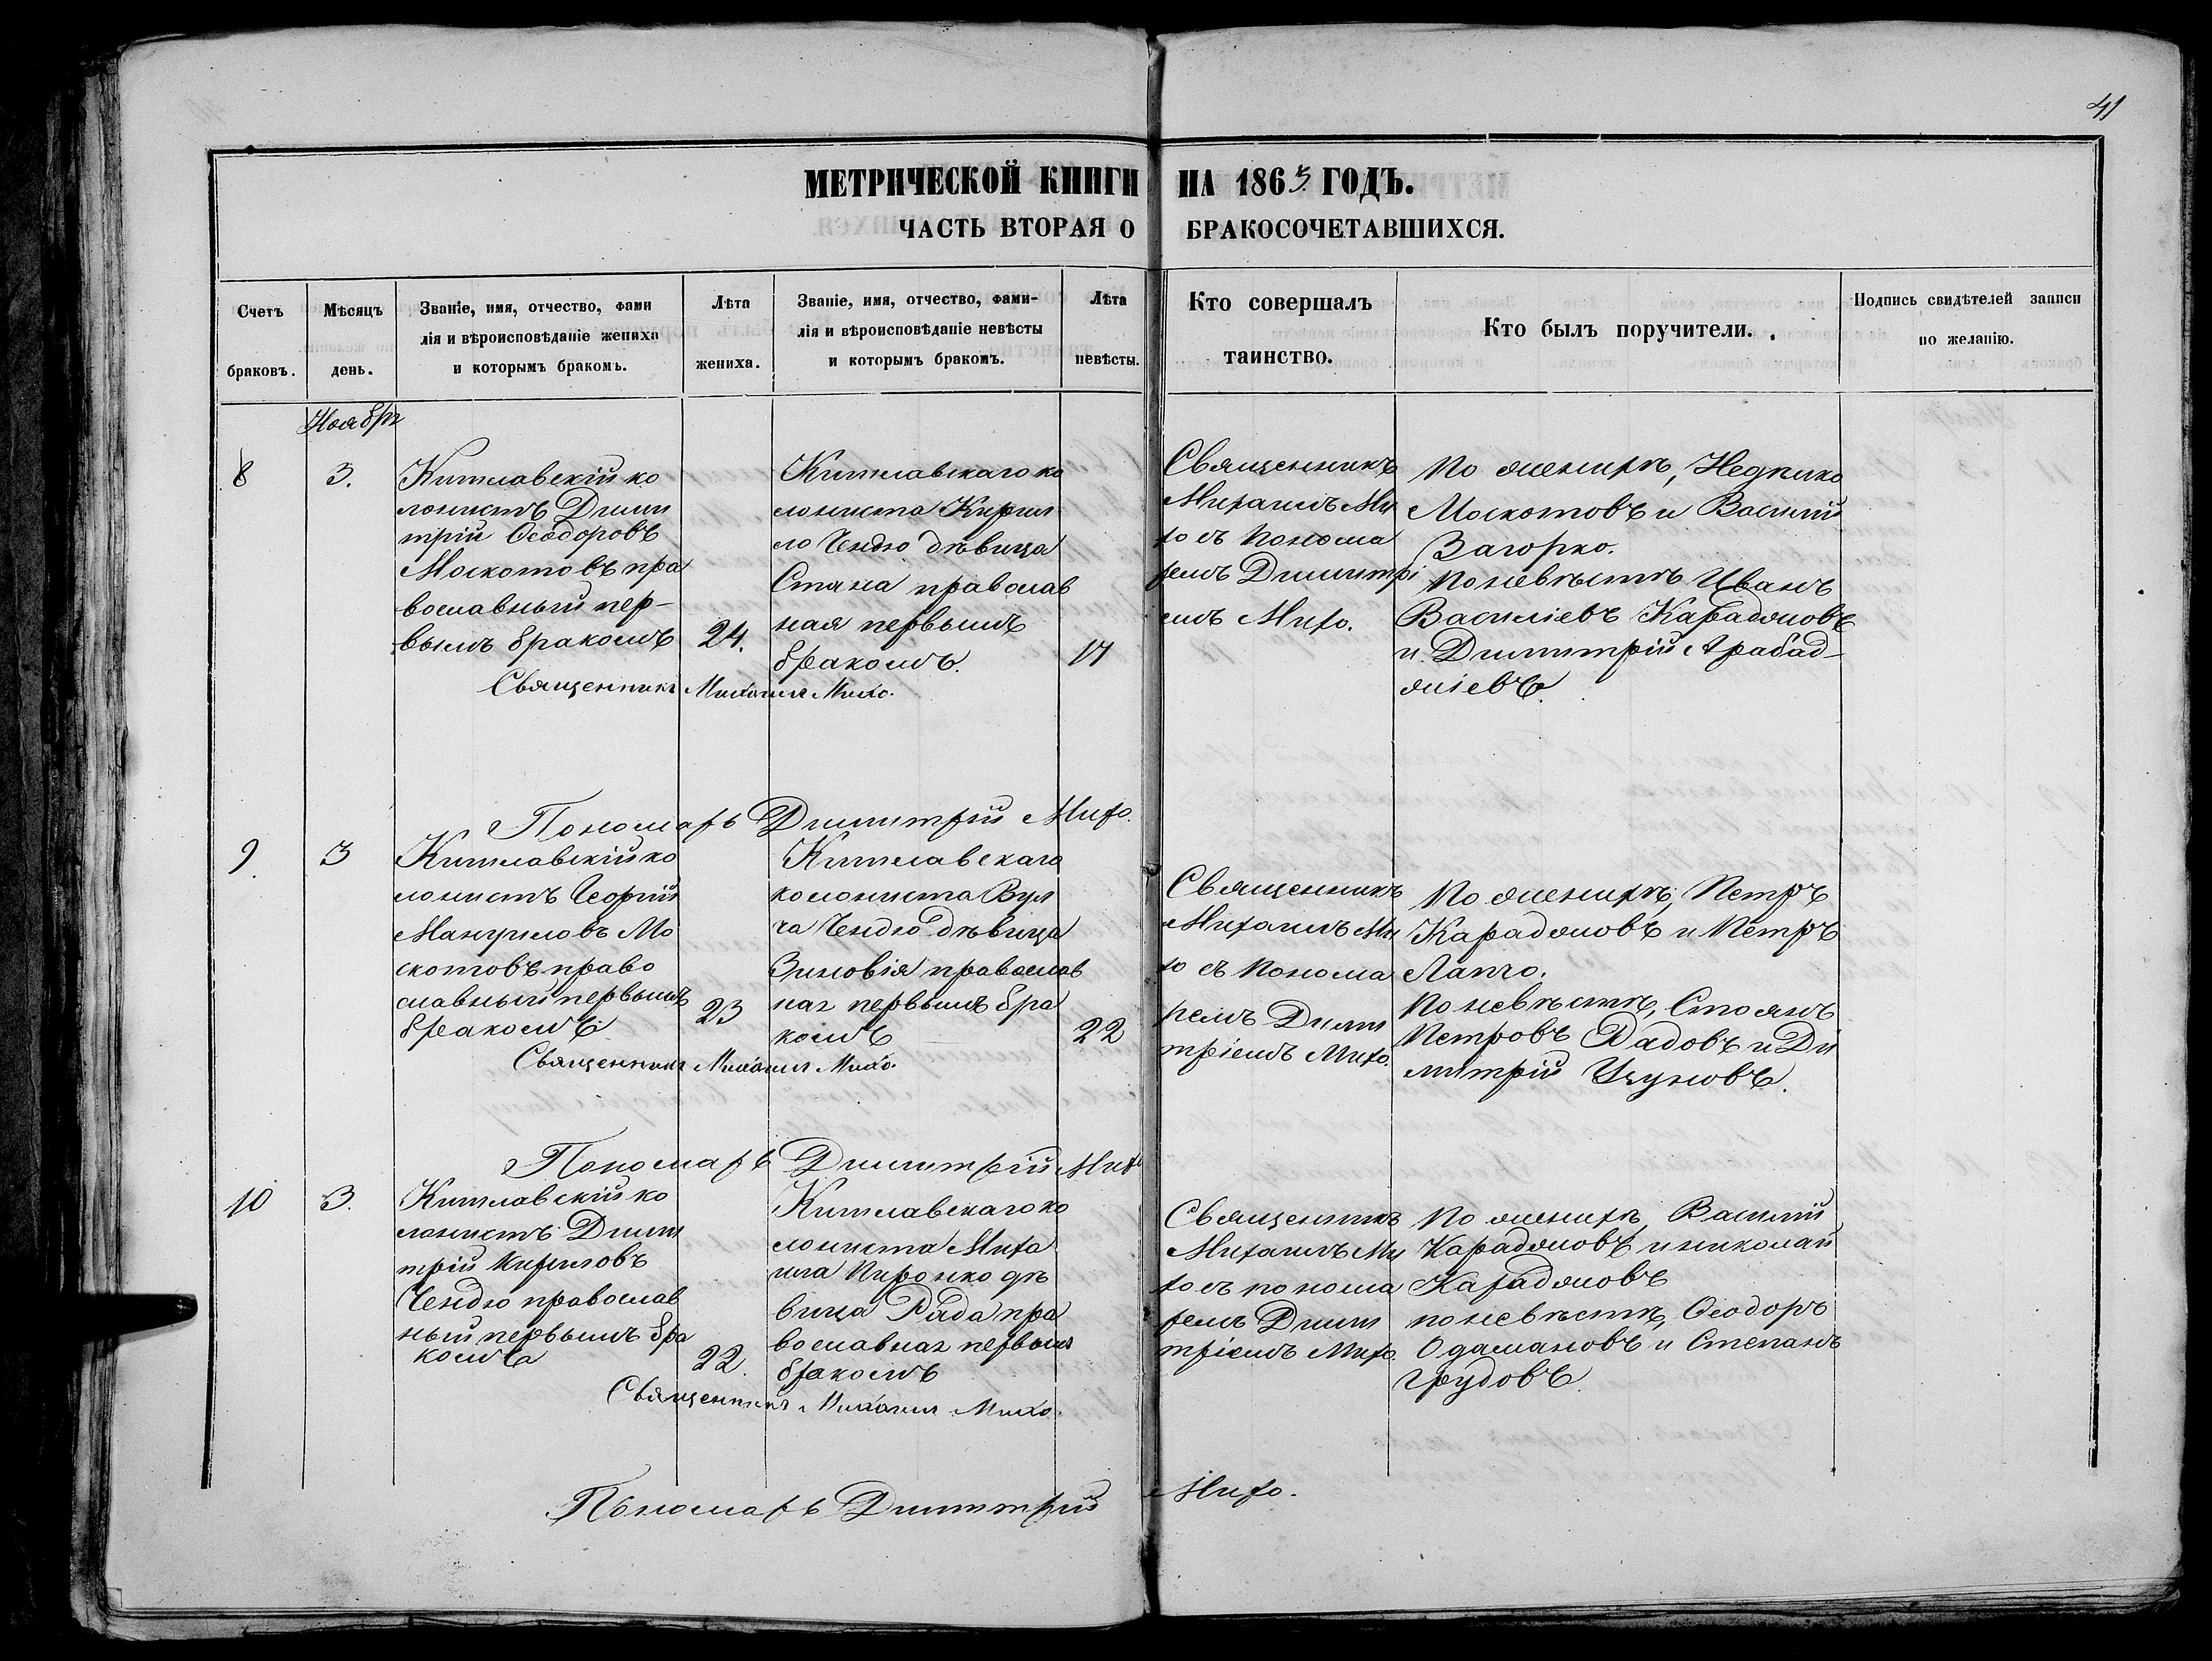 41
МЕТРИЧЕСКОЙ КНИГИ НА 1863 ГОДЪ.
ЧАСТЬ ВТОРАЯ О БРАКОСОЧЕТАВШИХСЯ.
Счетъ браковъ.
Мѣсяцъ день.
Званіе, имя, отчество, фами
лія и вѣроисповѣданіе жениха
и которымъ бракомъ.
Лѣта жениха.
Званіе, имя, отчество, фами-
лія и вѣроисповѣданіе невѣсты
и которымъ бракомъ.
Лѣта невѣсты.
Кто совершалъ
таинство.
Кто былъ поручители.
Подпись свидѣтелей записи
по желанію.
Ноябрь
8
3.
Китлавскій ко
лонистъ Дими
трій Ѳеодоровъ
Москотовъ пра
вославный пер-
вымъ бракомъ
24.
Китлавскаго ко
лониста Кирил
ло Чендю дѣвица
Стана православ
ная первымъ
бракомъ.
17
Священникъ
Михаилъ Ми
хо съ Понома
ремъ Димитрі
емъ Михо.
По женихѣ, Недялко
Москотовъ и Василій
Загорко.
По невѣстѣ Иванъ
Василіевъ Карадджовъ
и Димитрій Арабад-
жіевъ.
Священникъ Михаилъ Михо.
Пономарь Димитрій Михо.
9.
3
Китлавскій ко
лонистъ Георгій
Мануиловъ Мо
скотовъ право
славный первымъ
бракомъ
23
Китлавскаго
колониста Вул
ча Чендю дѣвица
Зиновія православ
ная первымъ бра
комъ
22
Священникъ
Михаилъ Ми
хо съ Понома
ремъ Дими
тріемъ Михо.
По женихѣ, Петръ
Караджовъ и Петръ
Лапчо.
По невѣстѣ, Стоянъ
Петровъ Дадовъ и Ди
митрій Узуновъ.
Священникъ Михаилъ Михо.
Пономарь Димитрій Михо
10
3.
Китлавскій ко
лонистъ Дими
трій Кириловъ
Чендю православ
ный первымъ бра
комъ
22.
Китлавскаго ко
лониста Миха
ила Пиронко дѣ
вица Рада пра
вославная первымъ
бракомъ
Священникъ
Михаилъ Ми
хо съ понома
ремъ Дими
тріемъ Михо.
По женихѣ, Василій
Караджовъ и Николай
Караджовъ
по невѣстѣ, Ѳеодоръ
Одамановъ и Степанъ
Грудовъ.
Священникъ Михаилъ Михо.
Пономарь Димитрій Михо.